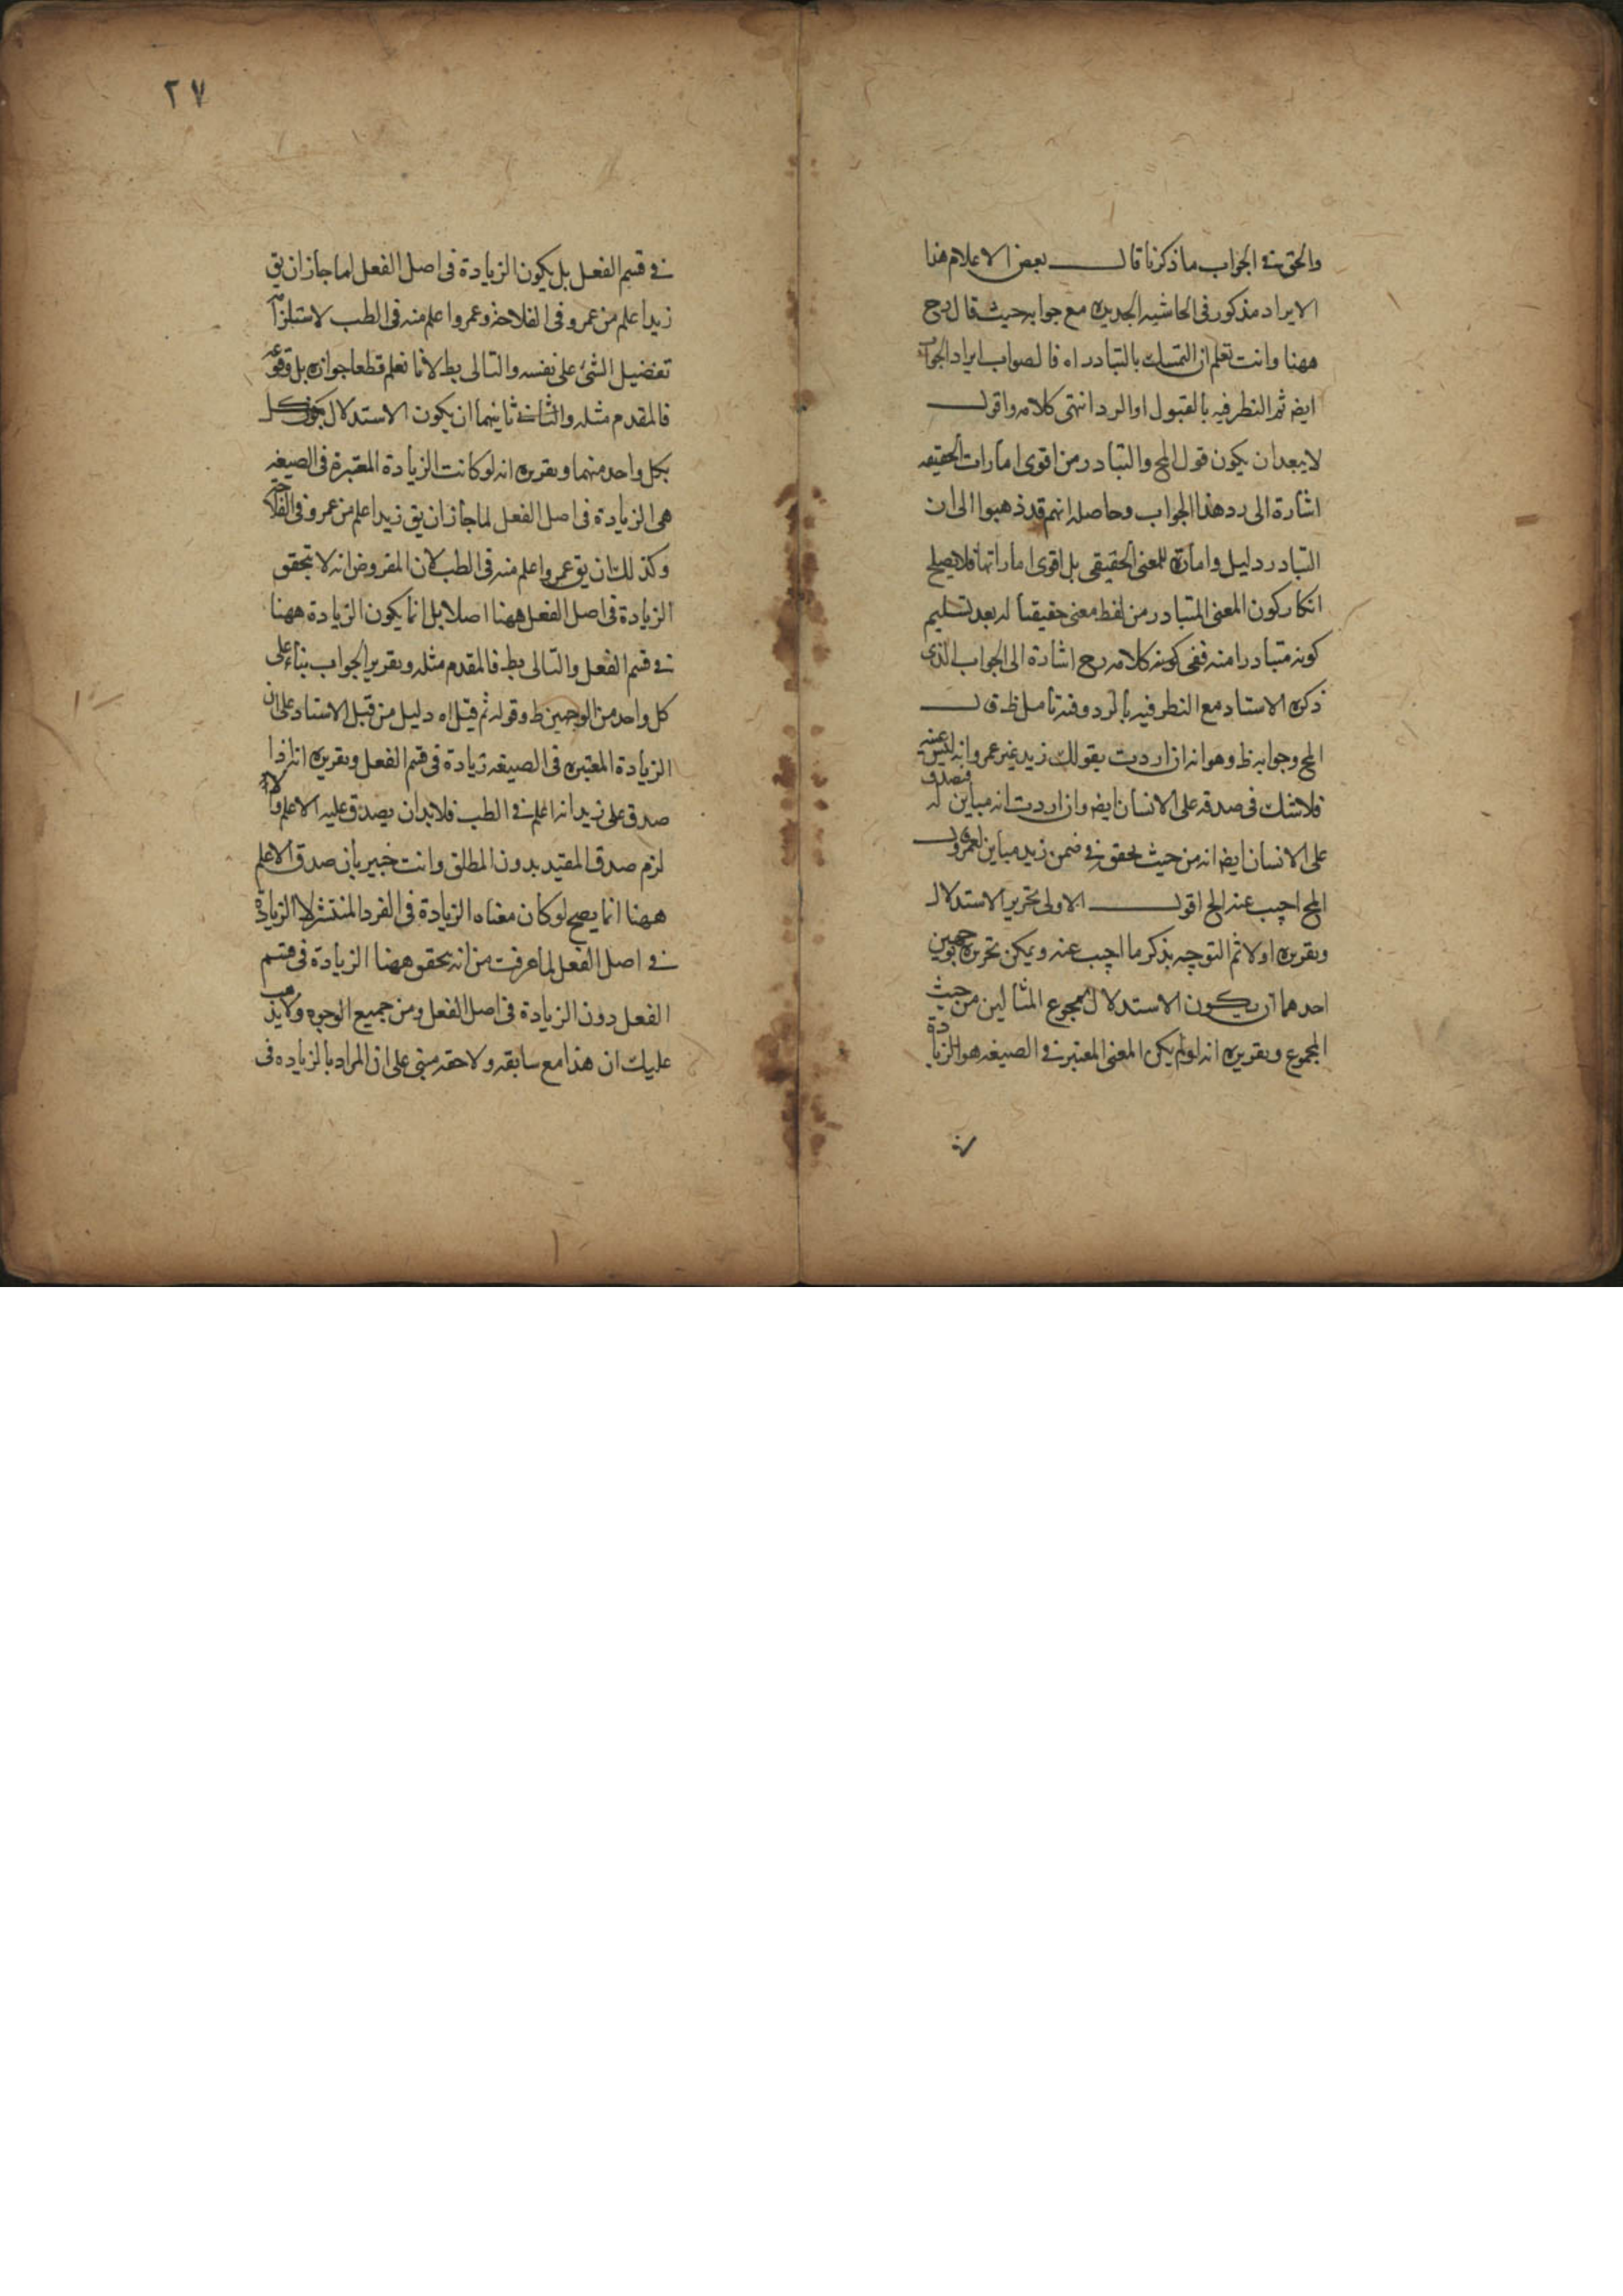 والحق في الجواب ما ذكرنا قال بعض الاعلام هذا
الايراد مذكور في الحاشيه الجديده مع جوابه حيث قال رح
ههنا وانت تعلم ان التمسك بالتبادر اه فالصواب ايراد الجواب
ايضه ثم النظر فيه بالقبول او الرد انتهى كلامه واقول
لا يبعد ان يكون قول المح والتبادر من اقوى امارات الحقيقه
اشارة الى رد هذا الجواب وحاصله انهم قد ذهبوا الى ان
التبادر دليل وامارة للمعنى الحقيقي بل اقوى اماراتها فلا يصلح
انكار كون المعنى المتبادر من لفظ معنى حقيقيا له بعد تسليم
كونه متبادرا منه ففي كونه كلامه رح اشارة الى الجواب الذي
ذكره الاستاد مع النظر فيه بالرد وفيه تامل ظ قال
المح وجوابه ظ وهو انه ان اردت بقولك زيد غير عمرو انه ليس عينه
فلا شك في صدقه على الانسان ايضه وان اردت انه مباين له فصدق
على الانسان ايضه انه من حيث تحقق في ضمن زيد مباين لعمرو قال
المح اجيب عنه الخ اقول الاولى تحرير الاستدلال
وتقريره اولا ثم التوجه بذكر ما اجيب عنه ويمكن تحريره بوجهين
احدهما ان يكون الاستدلال بمجموع المثالين من حيث
المجموع وتقريره انه لو لم يكن المعنى المعتبر في الصيغه هو الزيادة
في
٢٧
في قسم الفعل بل يكون الزيادة في اصل الفعل لما جاز ان يق
زيد اعلم من عمرو في الفلاحه وعمرو اعلم منه في الطب لاستلزامه
تفضيل الشئ على نفسه والتالى بط لانا نعلم قطعا جوازه بل وقوعه
فالمقدم مثله والثاني ثانيهما ان يكون الاستدلال
بكل واحد منهما وتقريره انه لو كانت الزيادة المعتبرة في الصيغه
هي الزيادة في اصل الفعل لما جاز ان يق زيد اعلم من عمرو في الفلاحه
وكذلك ان يق عمرو اعلم منه في الطب لان المفروض انه لا تحقق
الزيادة في اصل الفعل ههنا اصلا بل انما يكون الزيادة ههنا
في قسم الفعل والتالى بط فالمقدم مثله وتقرير الجواب بناء على
كل واحد من الوجهين ظ وقوله ثم قيل اه دليل من قبل الاستاد على ان
الزيادة المعتبره في الصيغه زيادة في قسم الفعل وتقريره انه اذا
صدق على زيد انه اعلم في الطب فلا بد ان يصدق عليه الاعلم والا
لزم صدق المقيد بدون المطلق وانت خبير بان صدق الاعلم
ههنا انما يصح لو كان معناه الزيادة في الفرد المنتشر لا الزيادة
في اصل الفعل لما عرفت من انه تحقق ههنا الزيادة في قسم
الفعل دون الزيادة في اصل الفعل ومن جميع الوجوه ولا يذهب
عليك ان هذا مع سابقه ولاحقه مبني على ان المراد بالزياده في